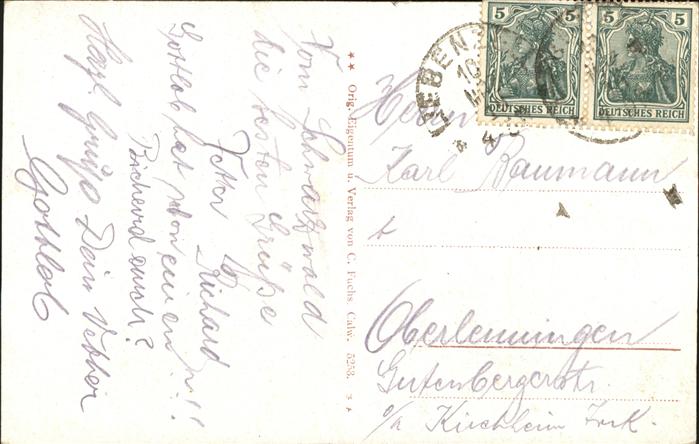 Vom Schwarzwald
die besten Grüße
Vetter
Richard
Gottlob hat schon einen!!
Herzl. Grüße Dein Vetter
Gottlob
★★ Orig.-Eigentum u. Verlag von C. Fuchs, Calw. 5253.
5 5
DEUTSCHES REICH
5 5
DEUTSCHES REICH
LIEBENZ
Herrn
Karl Baumann
Oberlenningen
Gutenbergerstr.
o/a Kirchheim